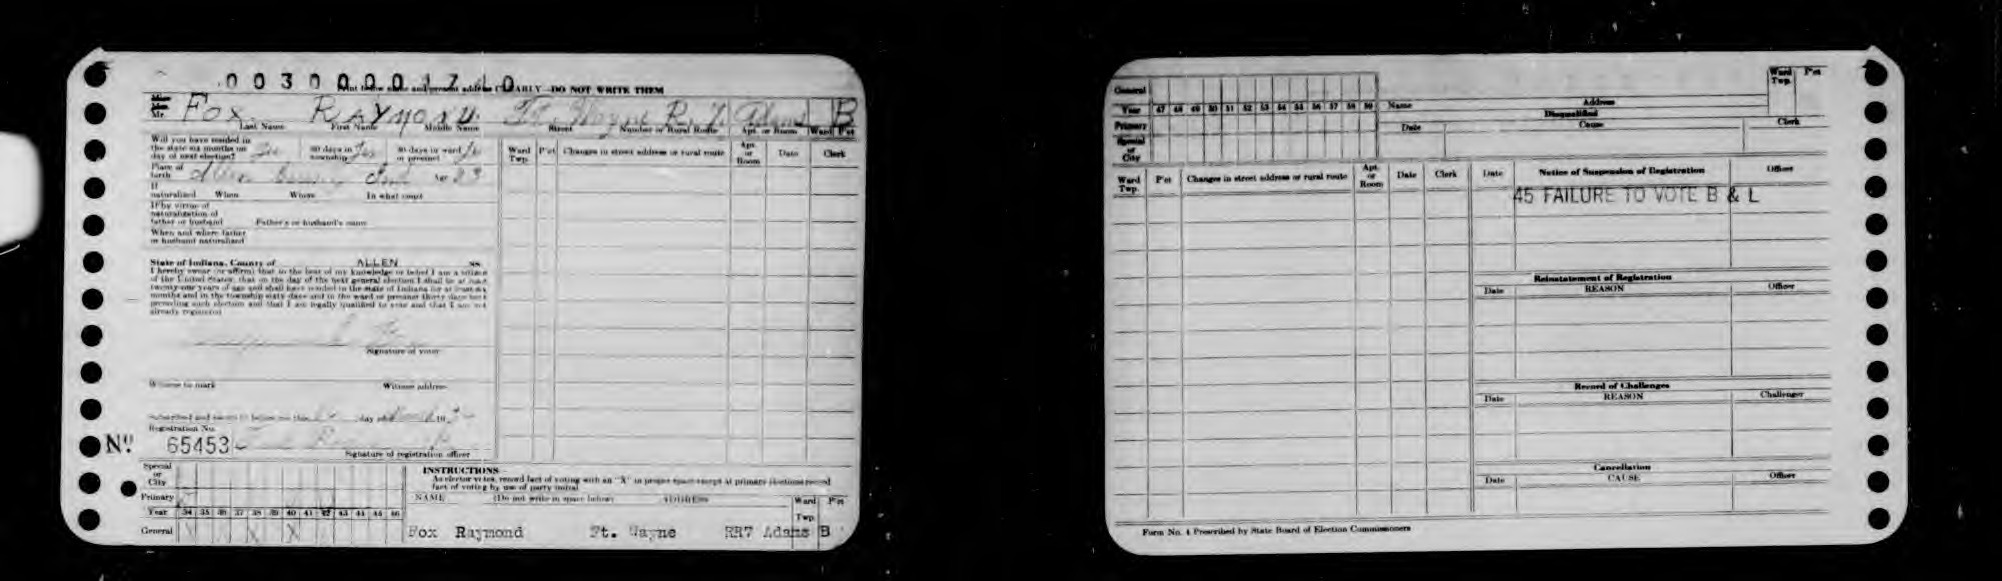 0030000 1740
Print below name and present address CLEARLY—DO NOT WRITE THEM
Miss
Mrs.
Mr. Fox Raymond Ft. Wayne R. 7 Adams B
Last Name First Name Middle Name Street Number or Rural Route Apt. or Room Ward P'ct
Will you have resided in
the state six months on
day of next election? Yes 60 days in township Yes 30 days in ward or precinct Yes
Place of
birth Allen County Ind Age 23
If
naturalized When Where In what court
If by virtue of
naturalization of
father or husband Father's or husband's name
When and where father
or husband naturalized
State of Indiana, County of ALLEN SS.
I hereby swear (or affirm) that to the best of my knowledge or belief I am a citizen
of the United States; that on the day of the next general election I shall be at least
twenty-one years of age and shall have resided in the state of Indiana for at least six
months and in the township sixty days and in the ward or precinct thirty days next
preceding such election and that I am legally qualified to vote and that I am not
already registered
Signature of voter
Witness to mark Witness address
Subscribed and sworn to before me this day of March 19
Registration No.
Nº 65453
Signature of registration officer
Ward
Twp. P'ct Changes in street address or rural route Apt.
or
Room Date Clerk
Special
or
City
Primary
Year 34 35 36 37 38 39 40 41 42 43 44 45 46
General X X X
INSTRUCTIONS—
As elector votes, record fact of voting with an "X" in proper space except at primary elections record
fact of voting by use of party initial
NAME (Do not write in space below) ADDRESS Ward
Twp. P'ct
Fox Raymond Ft. Wayne RR7 Adams B
General
Year 47 48 49 50 51 52 53 54 55 56 57 58 59
Primary
Special
or
City
Name Address Ward
Twp. P'ct
Disqualified
Date Cause Clerk
Ward
Twp. P'ct Changes in street address or rural route Apt.
or
Room Date Clerk
Date Notice of Suspension of Registration Officer
45 FAILURE TO VOTE B & L
Reinstatement of Registration
Date REASON Officer
Record of Challenges
Date REASON Challenger
Cancellation
Date CAUSE Officer
Form No. 4 Prescribed by State Board of Election Commissioners